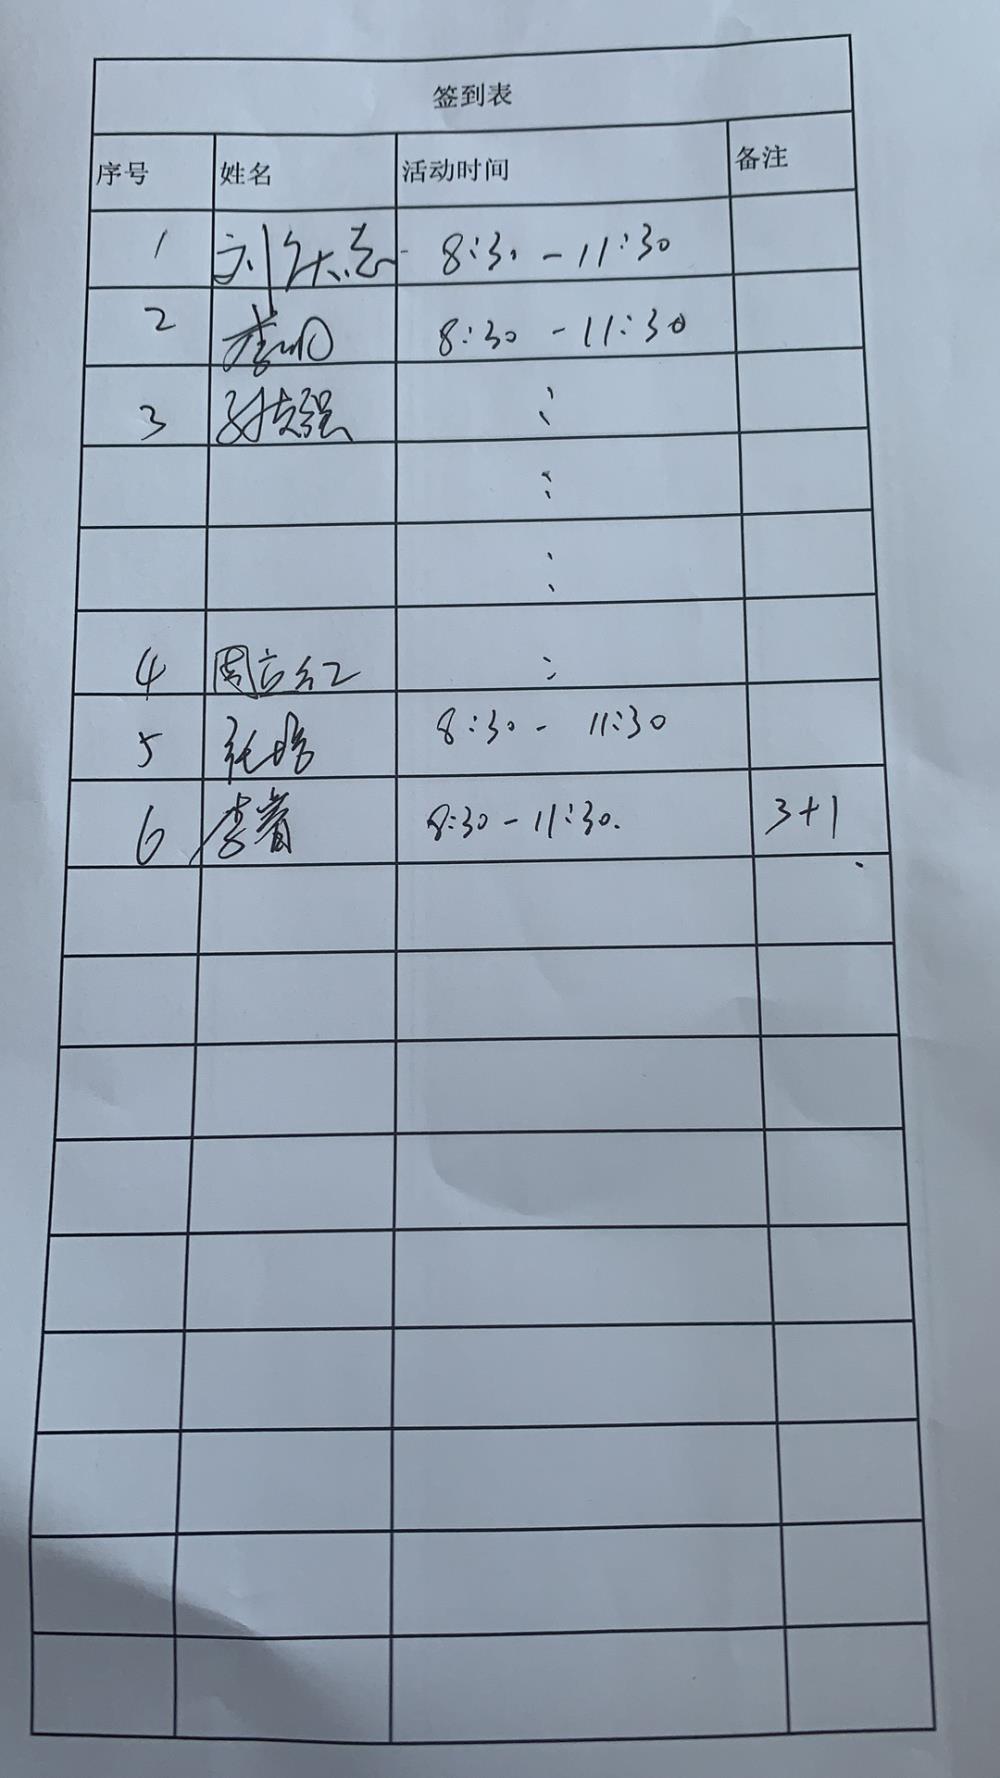 签到表
序号 姓名 活动时间 备注
1 刘久志 8:30 - 11:30
2 李明 8:30 - 11:30
3 :
:
:
4 周立红 :
5 张培 8:30 - 11:30
6 李青 8:30 - 11:30. 3+1